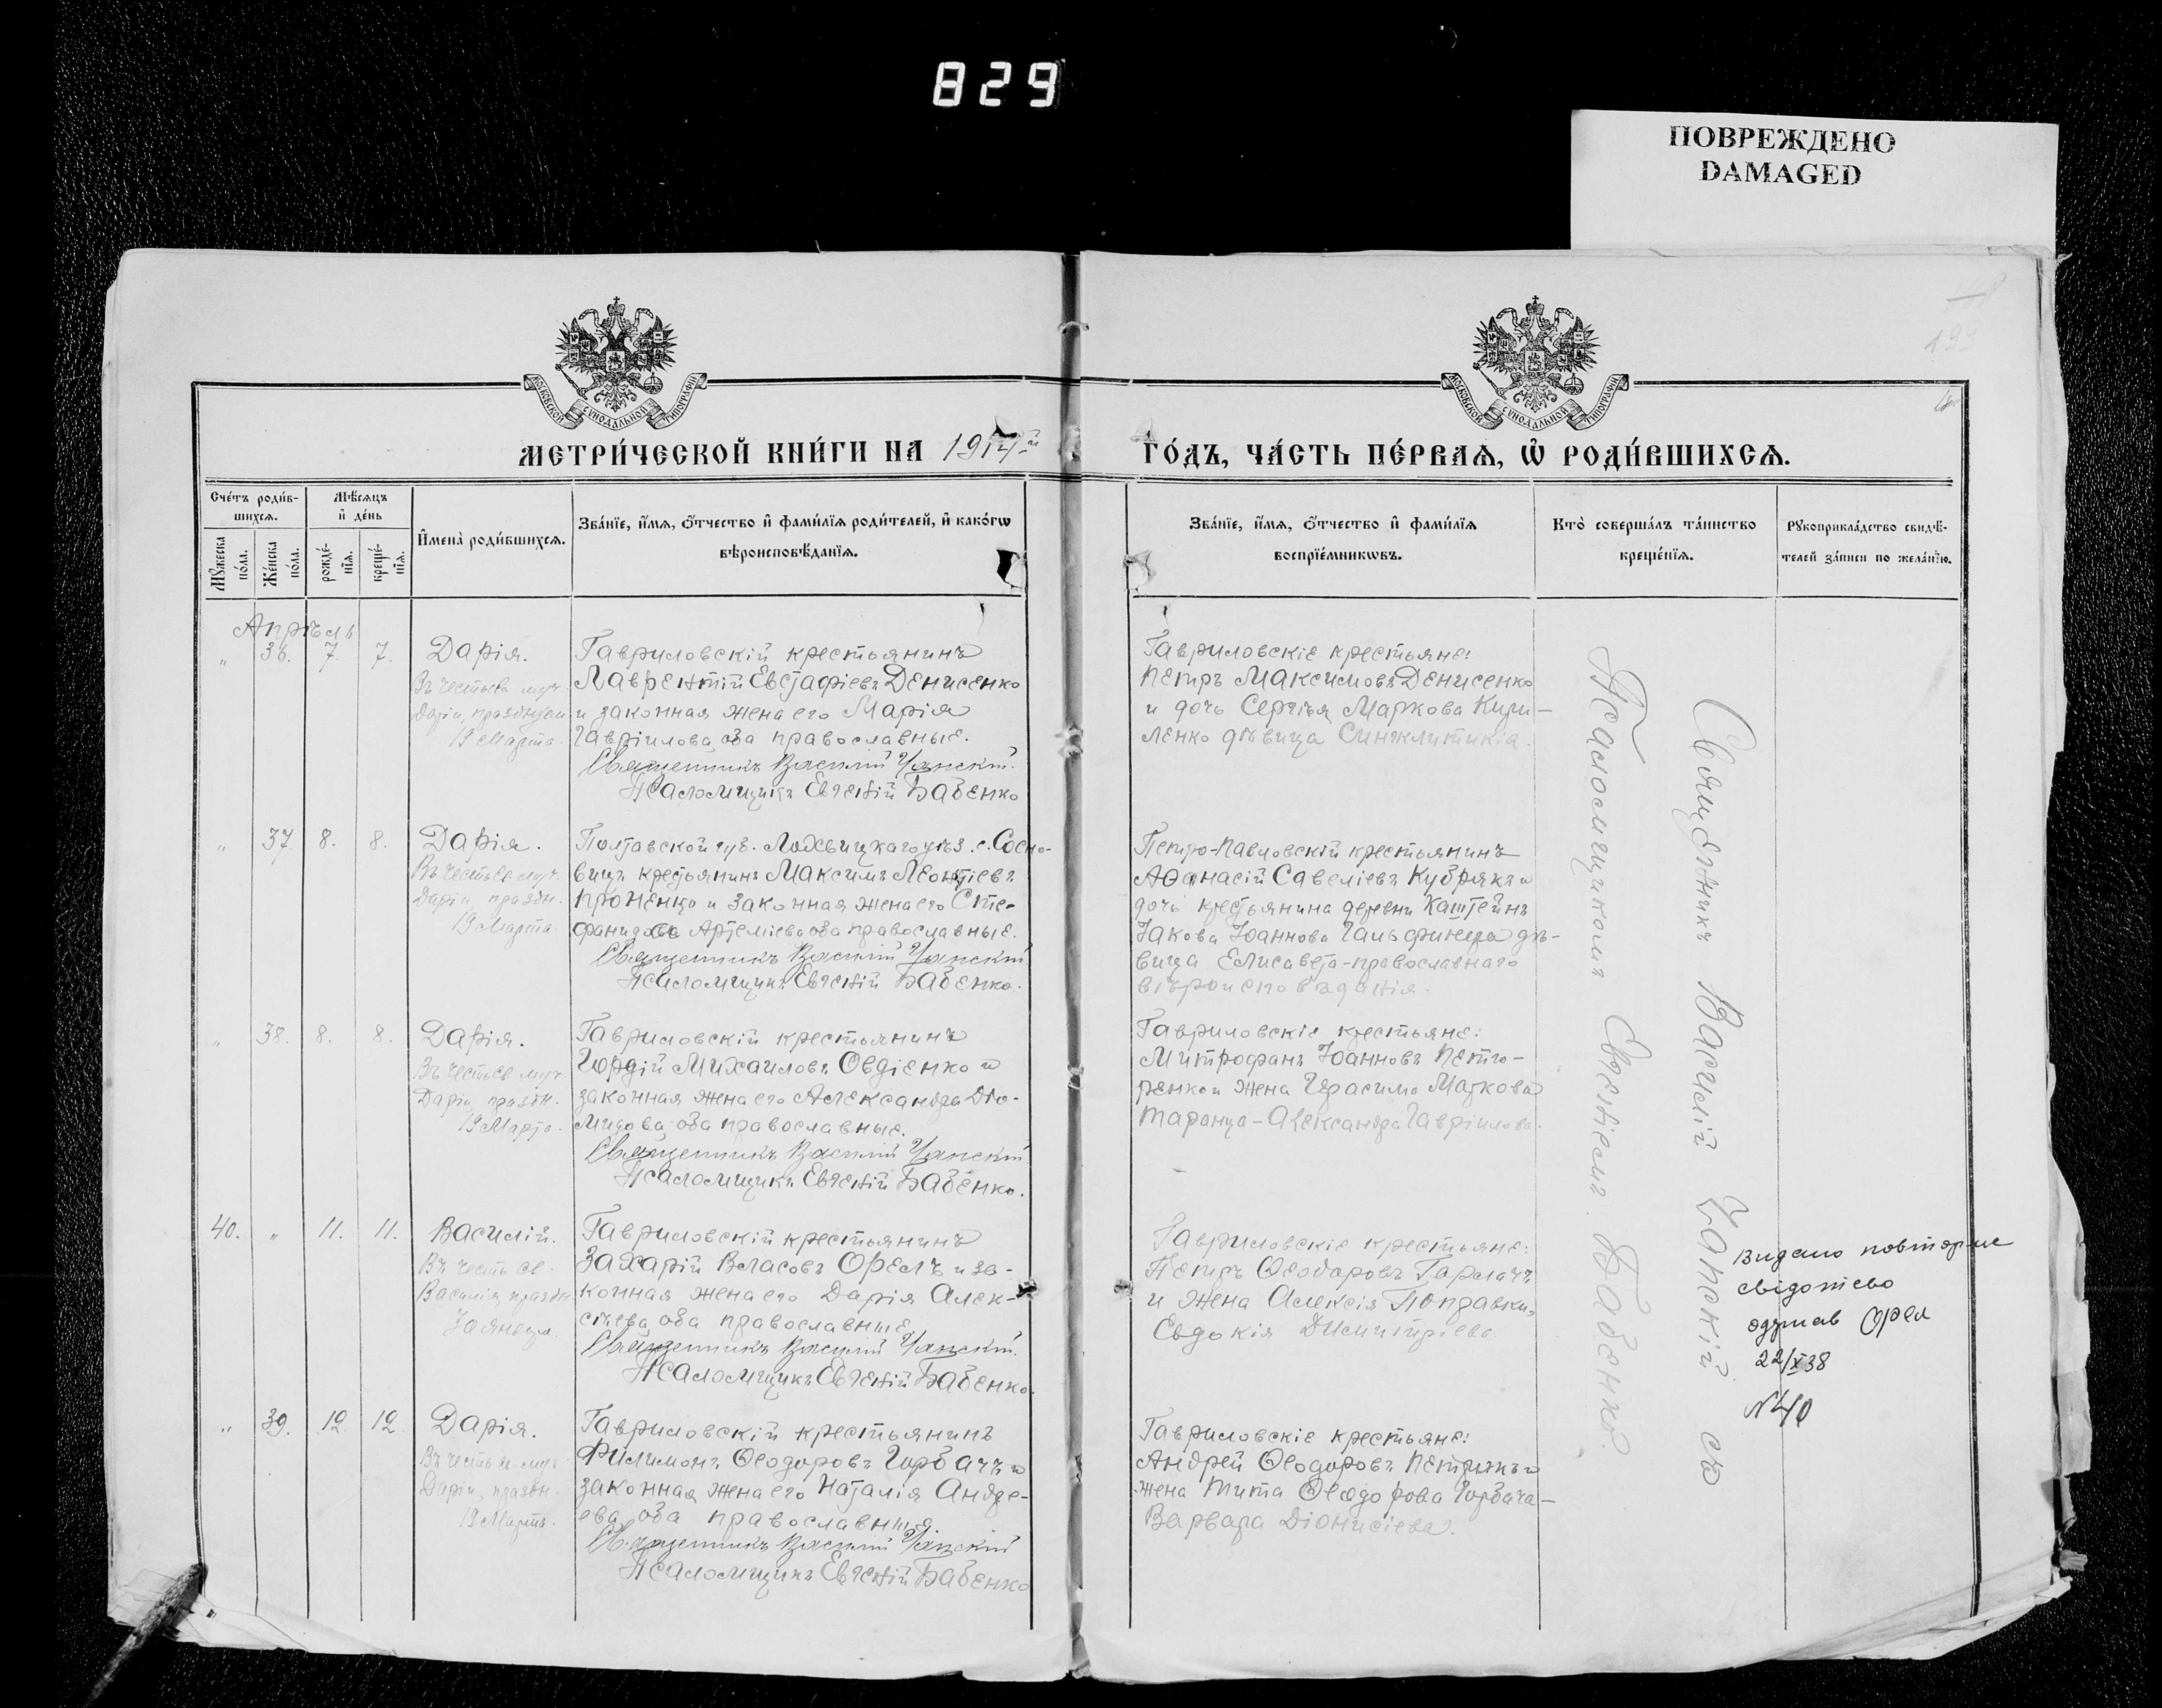 829
ПОВРЕЖДЕНО
DAMAGED
МОСКОВСКОЙ СѴНОДАЛЬНОЙ ТИПОГРАФІИ
МОСКОВСКОЙ СѴНОДАЛЬНОЙ ТИПОГРАФІИ
МЕТРИ́ЧЕСКОЙ КНИ́ГИ НА 1914й
ГО́ДЪ, ЧА́СТЬ ПЕ́РВАѦ, Ѡ҆ РОДИ́ВШИХСѦ.
Сче́тъ роди́в-
шихсѧ.
Мѣ́сѧцъ
и҆ де́нь
Мꙋ́жеска
по́ла.
Же́нска
по́ла.
рожде́-
нїѧ.
креще́-
нїѧ.
И҆мена̀ роди́вшихсѧ.
Зва́нїе, и҆́мѧ, ѻ҆́тчество и҆ фами́лїѧ роди́телей, и҆ како́гѡ
вѣроисповѣ́данїѧ.
Зва́нїе, и҆́мѧ, ѻ҆́тчество и҆ фами́лїѧ
воспрїе́мникѡвъ.
Кто̀ соверша́лъ та́инство
креще́нїѧ.
Рꙋкоприкла́дство свидѣ́-
телей за́писи по жела́нїю.
Апрѣль
„ 36. 7. 7. Дарія.
Въ честь св. муч.
Дарiи, празднуем
19 Марта.
Гавриловскій крестьянинъ
Лаврентій Евстафіевъ Денисенко
и законная жена его Марія
Гавріилова, оба православные.
Священникъ Василій Чанскій.
Псаломщикъ Евгеній Бабенко
Гавриловскіе крестьяне:
Петръ Максимовъ Денисенко
и дочь Сергѣя Маркова Кири-
ленко дѣвица Синклитикія.
„ 37. 8. 8. Дарія.
Въ честь св. муч.
Дарiи, праздн.
19 Марта.
Полтавской губ. Лохвицкаго уѣз. с. Сосно-
вицъ крестьянинъ Максимъ Леонтіевъ
Проненко и законная жена его Сте-
фанида Артеміева, оба православные.
Священникъ Василій Чанскій
Псаломщикъ Евгеній Бабенко.
Петро-Павловскій крестьянинъ
Афанасій Савеліевъ Кубрякъ и
дочь крестьянина деревни
Іакова Іоаннова дѣ-
вица Елисавета - православнаго
вѣроисповѣданія.
„ 38. 8. 8. Дарія.
Въ честь св. муч.
Дарiи, праздн.
19 Марта.
Гавриловскій крестьянинъ
Гордій Михаиловъ Овдіенко и
законная жена его Александра Діо-
мидова, оба православные.
Священникъ Василій Чанскій
Псаломщикъ Евгеній Бабенко.
Гавриловскіе крестьяне:
Митрофанъ Іоанновъ Петро-
ренко и жена Герасима Маркова
Таранца - Александра Гавріилова.
40. „ 11. 11. Василій.
Въ честь св.
Василія, праздн.
января.
Гавриловскій крестьянинъ
Захарій Власовъ Орелъ и за-
конная жена его Дарія Алек-
сѣева, оба православные.
Священникъ Василій Чанскій.
Псаломщикъ Евгеній Бабенко.
Гавриловскіе крестьяне:
Петръ Ѳеодоровъ Гармачъ
и жена Алексія Поправки,
Евдокія Димитріева.
„ 39. 12. 12. Дарія.
Въ честь св. муч.
Дарiи, праздн.
19 Марта.
Гавриловскій крестьянинъ
Филимонъ Ѳеодоровъ Горбачъ и
законная жена его Наталія Андре-
ева, оба православные
Священникъ Василій Чанскій
Псаломщикъ Евгеній Бабенко
Гавриловскіе крестьяне:
Андрей Ѳеодоровъ и
жена Тита Ѳеодорова Горбача -
Варвара Діонисіева.
Священникъ Василій Чанскій съ
Псаломщикомъ Евгеніемъ Бабенко.
Видано повторне
свідотство
одержав Орел
22/X 38
№40